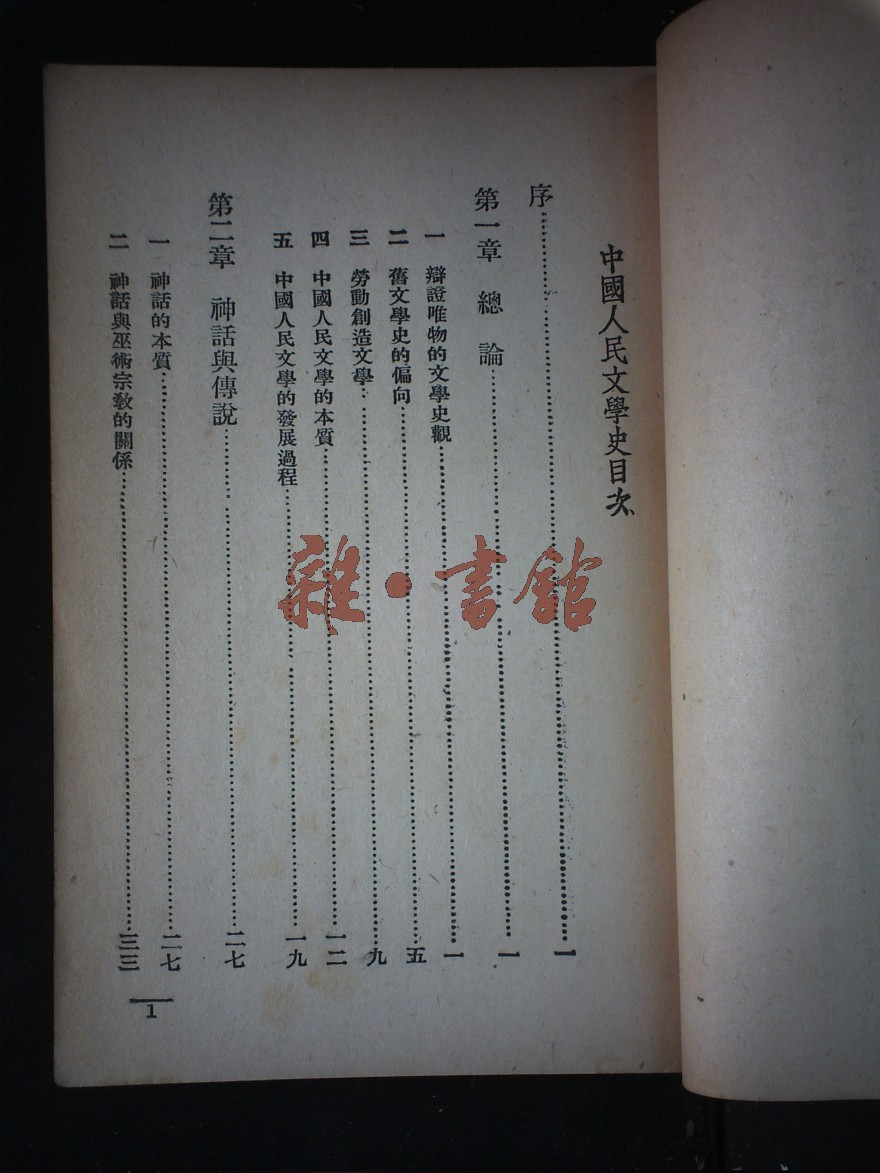 中國人民文學史目次
序……一
第一章　總　論……一
一　辯證唯物的文學史觀……一
二　舊文學史的偏向……五
三　勞動創造文學……九
四　中國人民文學的本質……一二
五　中國人民文學的發展過程……一九
第二章　神話與傳說……二七
一　神話的本質……二七
二　神話與巫術宗教的關係……三三
1
雜·書館